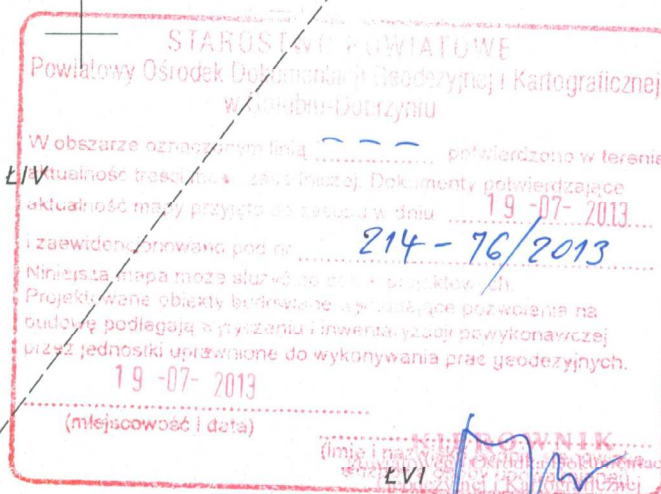 STAROSTWO POWIATOWE
Powiatowy Ośrodek Dokumentacji Geodezyjnej i Kartograficznej
w Golubiu-Dobrzyniu
W obszarze oznaczonym linią – – – potwierdzono w terenie
ŁIV
aktualność treści mapy zasadniczej. Dokumenty potwierdzające
aktualność mapy przyjęto do zasobu w dniu 19 -07- 2013
i zaewidencjonowano pod nr 214-76/2013
Niniejsza mapa może służyć do celów projektowych.
Projektowane obiekty budowlane wymagające pozwolenia na
budowę podlegają wytyczeniu i inwentaryzacji powykonawczej
przez jednostki uprawnione do wykonywania prac geodezyjnych.
19 -07- 2013
(miejscowość i data)
KIEROWNIK
(imię i nazwisko
ŁVI
Geodezyjnej i Kartograficznej